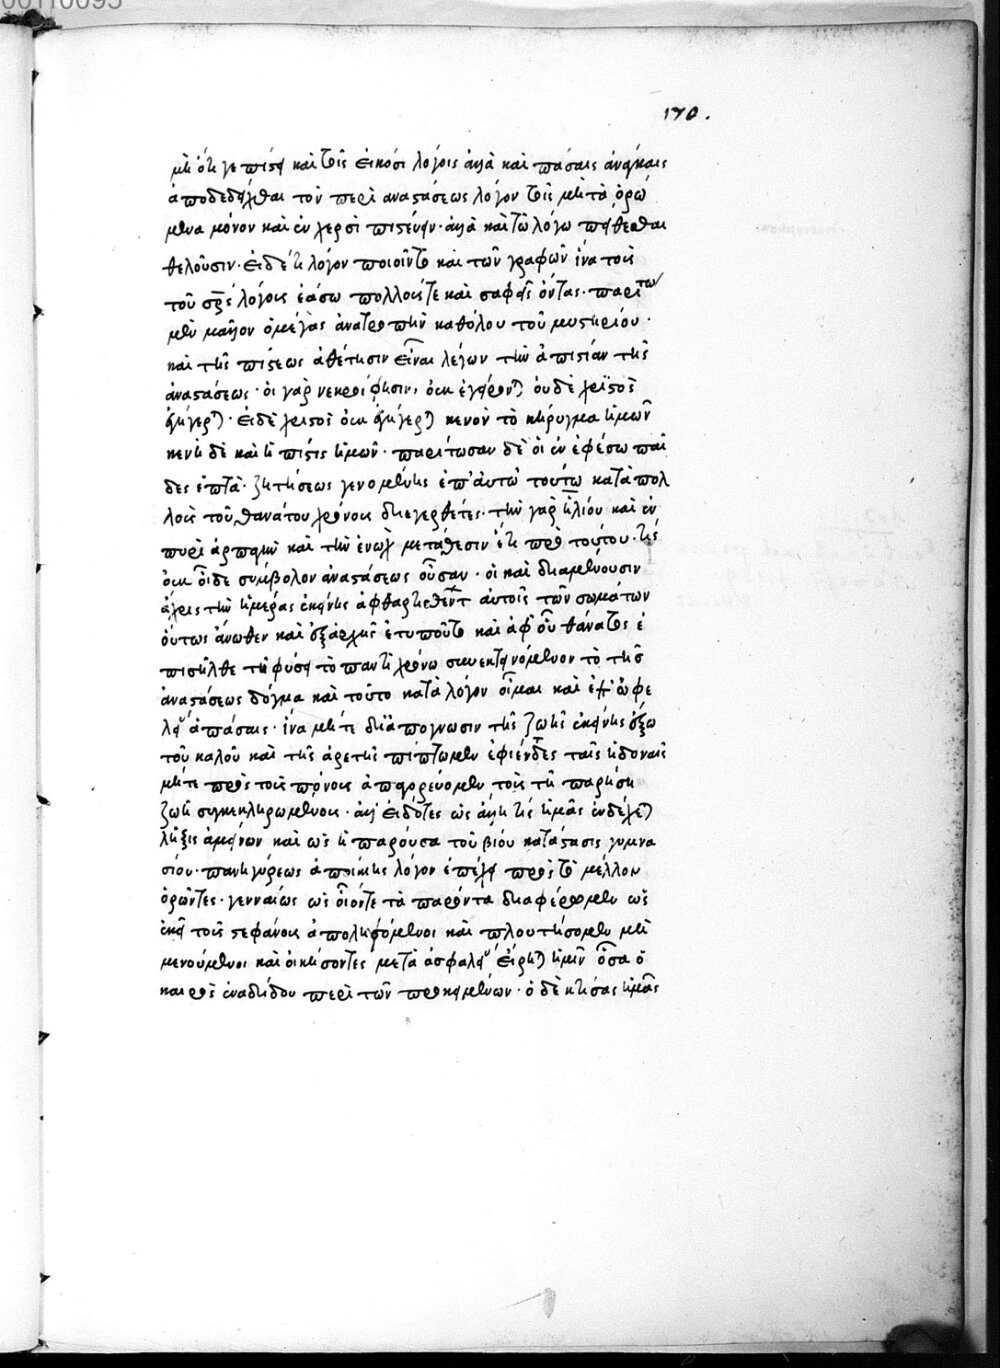 00110095
170.
μὴ ὅτι γε πίστει καὶ τοῖς εἰκόσι λόγοις ἀλλὰ καὶ πάσαις ἀνάγκαις
ἀποδεδεῖχθαι τὸν περὶ αναστάσεως λόγον τοῖς μὴ τὰ ὁρώ
μενα μόνον καὶ ἐν χερσὶ πιστεύειν· ἀλλὰ καὶ τῶ λόγω πείθεσθαι
θελοῦσιν· εἰ δέ τι λόγον ποιοῖντο καὶ τῶν γραφῶν ἵνα τοὺς
τοῦ σρ̅ς λόγους ἐάσω πολλούς τε καὶ σαφεῖς ὄντας· παρίτων
μὲν μᾶλλον ὁ μέγας ἀνατροπὴν καθόλου τοῦ μυστηρίου·
καὶ τῆς πίστεως ἀθέτησιν εἶναι λέγων τὴν ἀπιστίαν τῆς
ἀναστάσεως· εἰ γὰρ νεκροί φησιν, οὐκ ἐγείρονται οὐδὲ χριστὸς
ἐγήγερται· εἰ δὲ χριστὸς οὐκ ἐγήγερται κενὸν τὸ κήρυγμα ἡμῶν
κενὴ δὲ καὶ ἡ πίστις ἡμῶν· παρίτωσαν δὲ οἱ ἐν ἐφέσω παῖ
δες ἑπτὰ· ζητήσεως γενομένης ἐπ' αὐτῶ τούτω κατὰ πολ
λοὺς τοῦ θανάτου χρόνους διεγερθέντες· τὴν γὰρ ἡλίου καὶ ἐν
πυρὶ ἁρπαγὴν καὶ τὴν ἐνὼχ μετάθεσιν ἔτι πρὸ τούτου· τίς
οὐκ οἶδε σύμβολον ἀναστάσεως οὖσαν· οἳ καὶ διαμένουσιν
ἄχρις τῆς ἡμέρας ἐκείνης ἀφθαρτισθέντων αὐτοῖς τῶν σωμάτων
οὕτως ἄνωθεν καὶ ἐξαρχῆς ἐτυποῦτο καὶ ἀφ' οὗ θάνατος ἐ
πεισῆλθε τῆ φύσει τὸ παντὶ χρόνω συνεκτεινόμενον τὸ τῆς
ἀναστάσεως δόγμα καὶ τοῦτο κατὰ λόγον οἶμαι καὶ ἐπ' ὠφε
λεία ἁπάσαις· ἵνα μήτε δι' ἀπόγνωσιν τῆς ζωῆς ἐκείνης ἔξω
τοῦ καλοῦ καὶ τῆς ἀρετῆς πίπτωμεν ἐφιέντες ταῖς ἡδοναῖς
μήτε πρὸς τοὺς πόνους ἀπαγορεύομεν τοὺς τῆ παρούση
ζωῆ συγκεκληρωμένους· ἀλλ' εἰδότες ὡς ἄλλη τίς ἡμᾶς ἐνδέχεται
λῆξις ἀμείνων καὶ ὡς ἡ παροῦσα τοῦ βίου κατάστασις γυμνα
σίου· πανηγύρεως ἀποίκης λόγον ἐπέχει πρὸς τὸ μέλλον
ὁρῶντες· γενναίως ὡς οἷόν τε τὰ παρόντα διαφέρωμεν ὡς
ἐκεῖ τοὺς στεφάνους ἀποληψόμενοι καὶ πλουτήσομεν μὴ
μενούμενοι καὶ οἰκήσοντες μετὰ ἀσφαλείας εἴρηται ἡμῖν ὅσα ὁ
καιρὸς ἐναδίδου περὶ τῶν προκειμένων· ὁ δὲ κτίσας ἡμᾶς